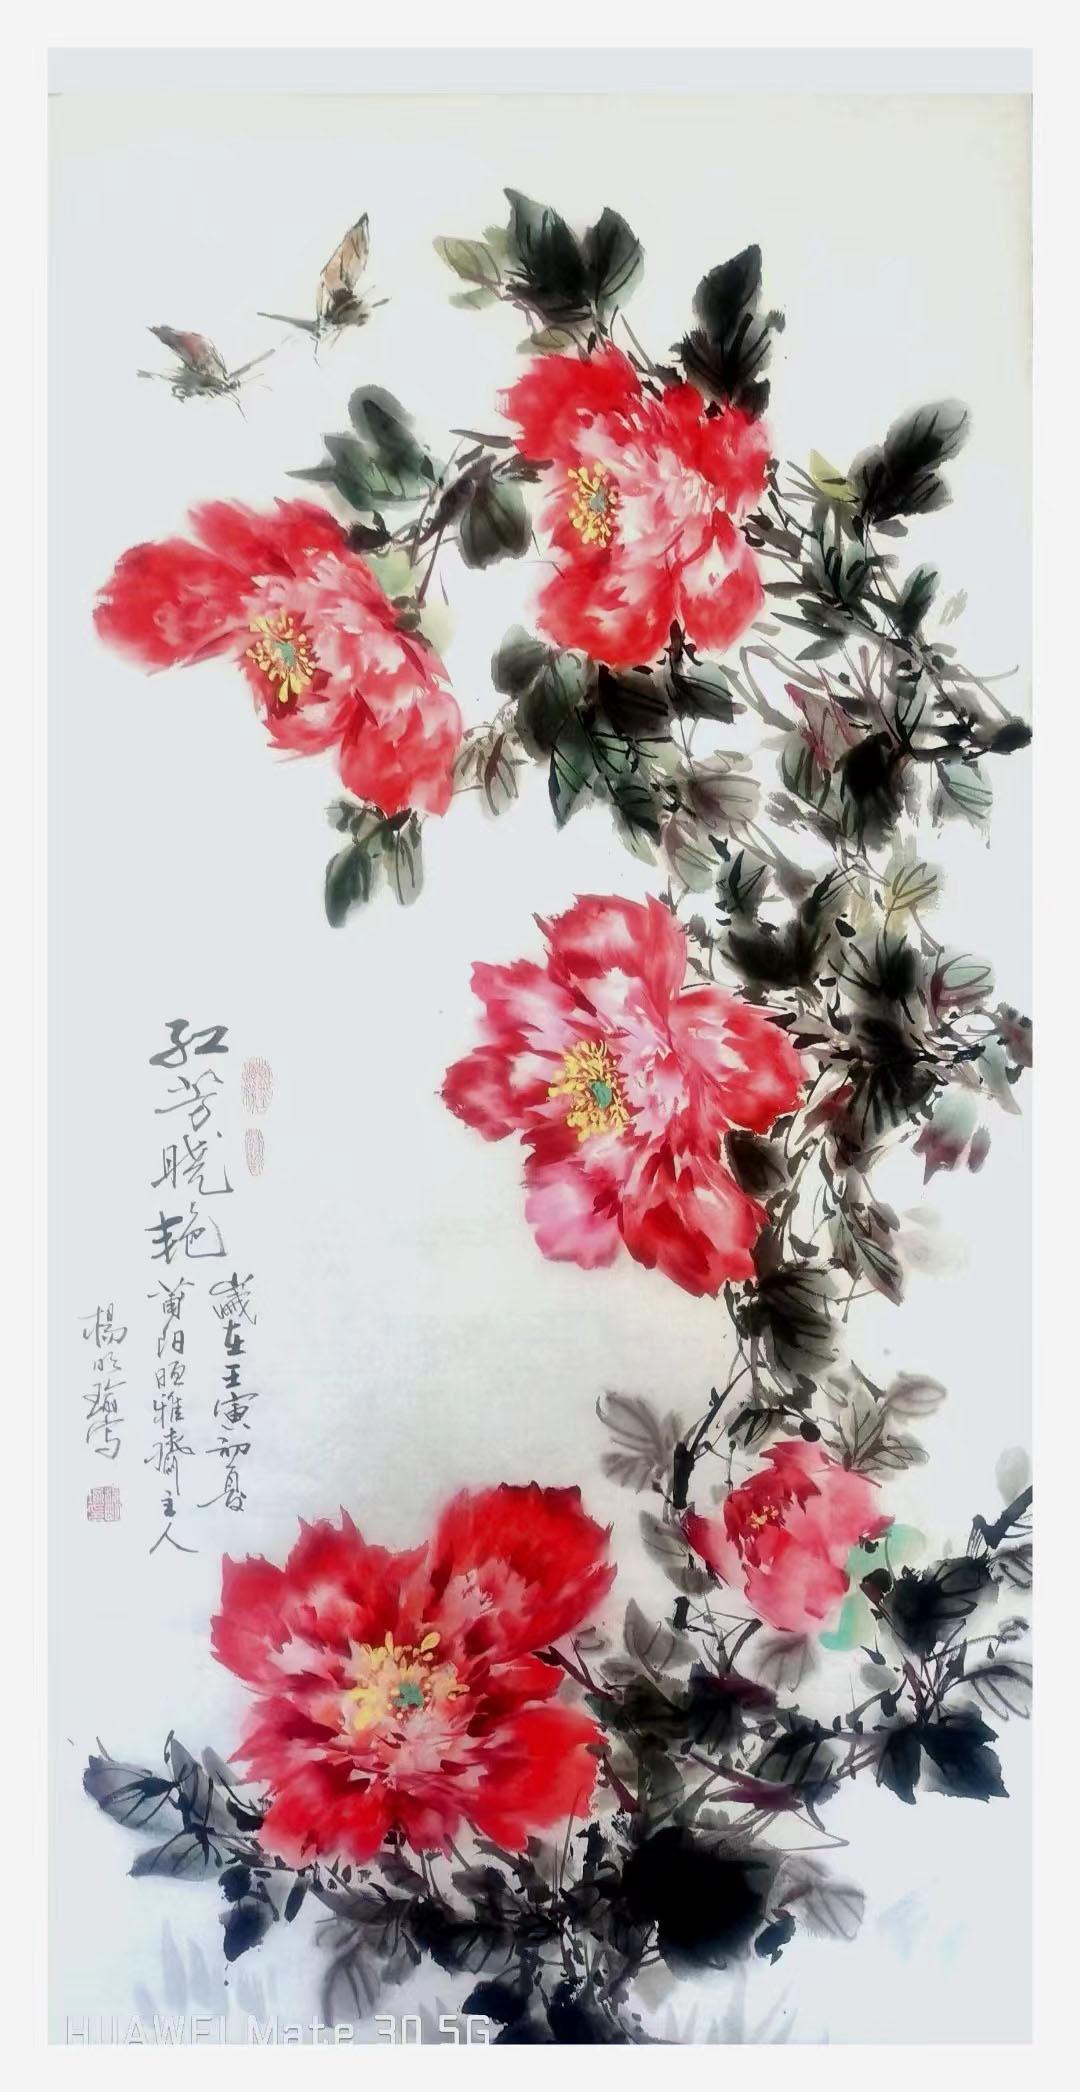 红芳晓艳
岁在壬寅初夏
莆阳恒雅斋主人
杨明瑜写
HUAWEI Mate 30 5G